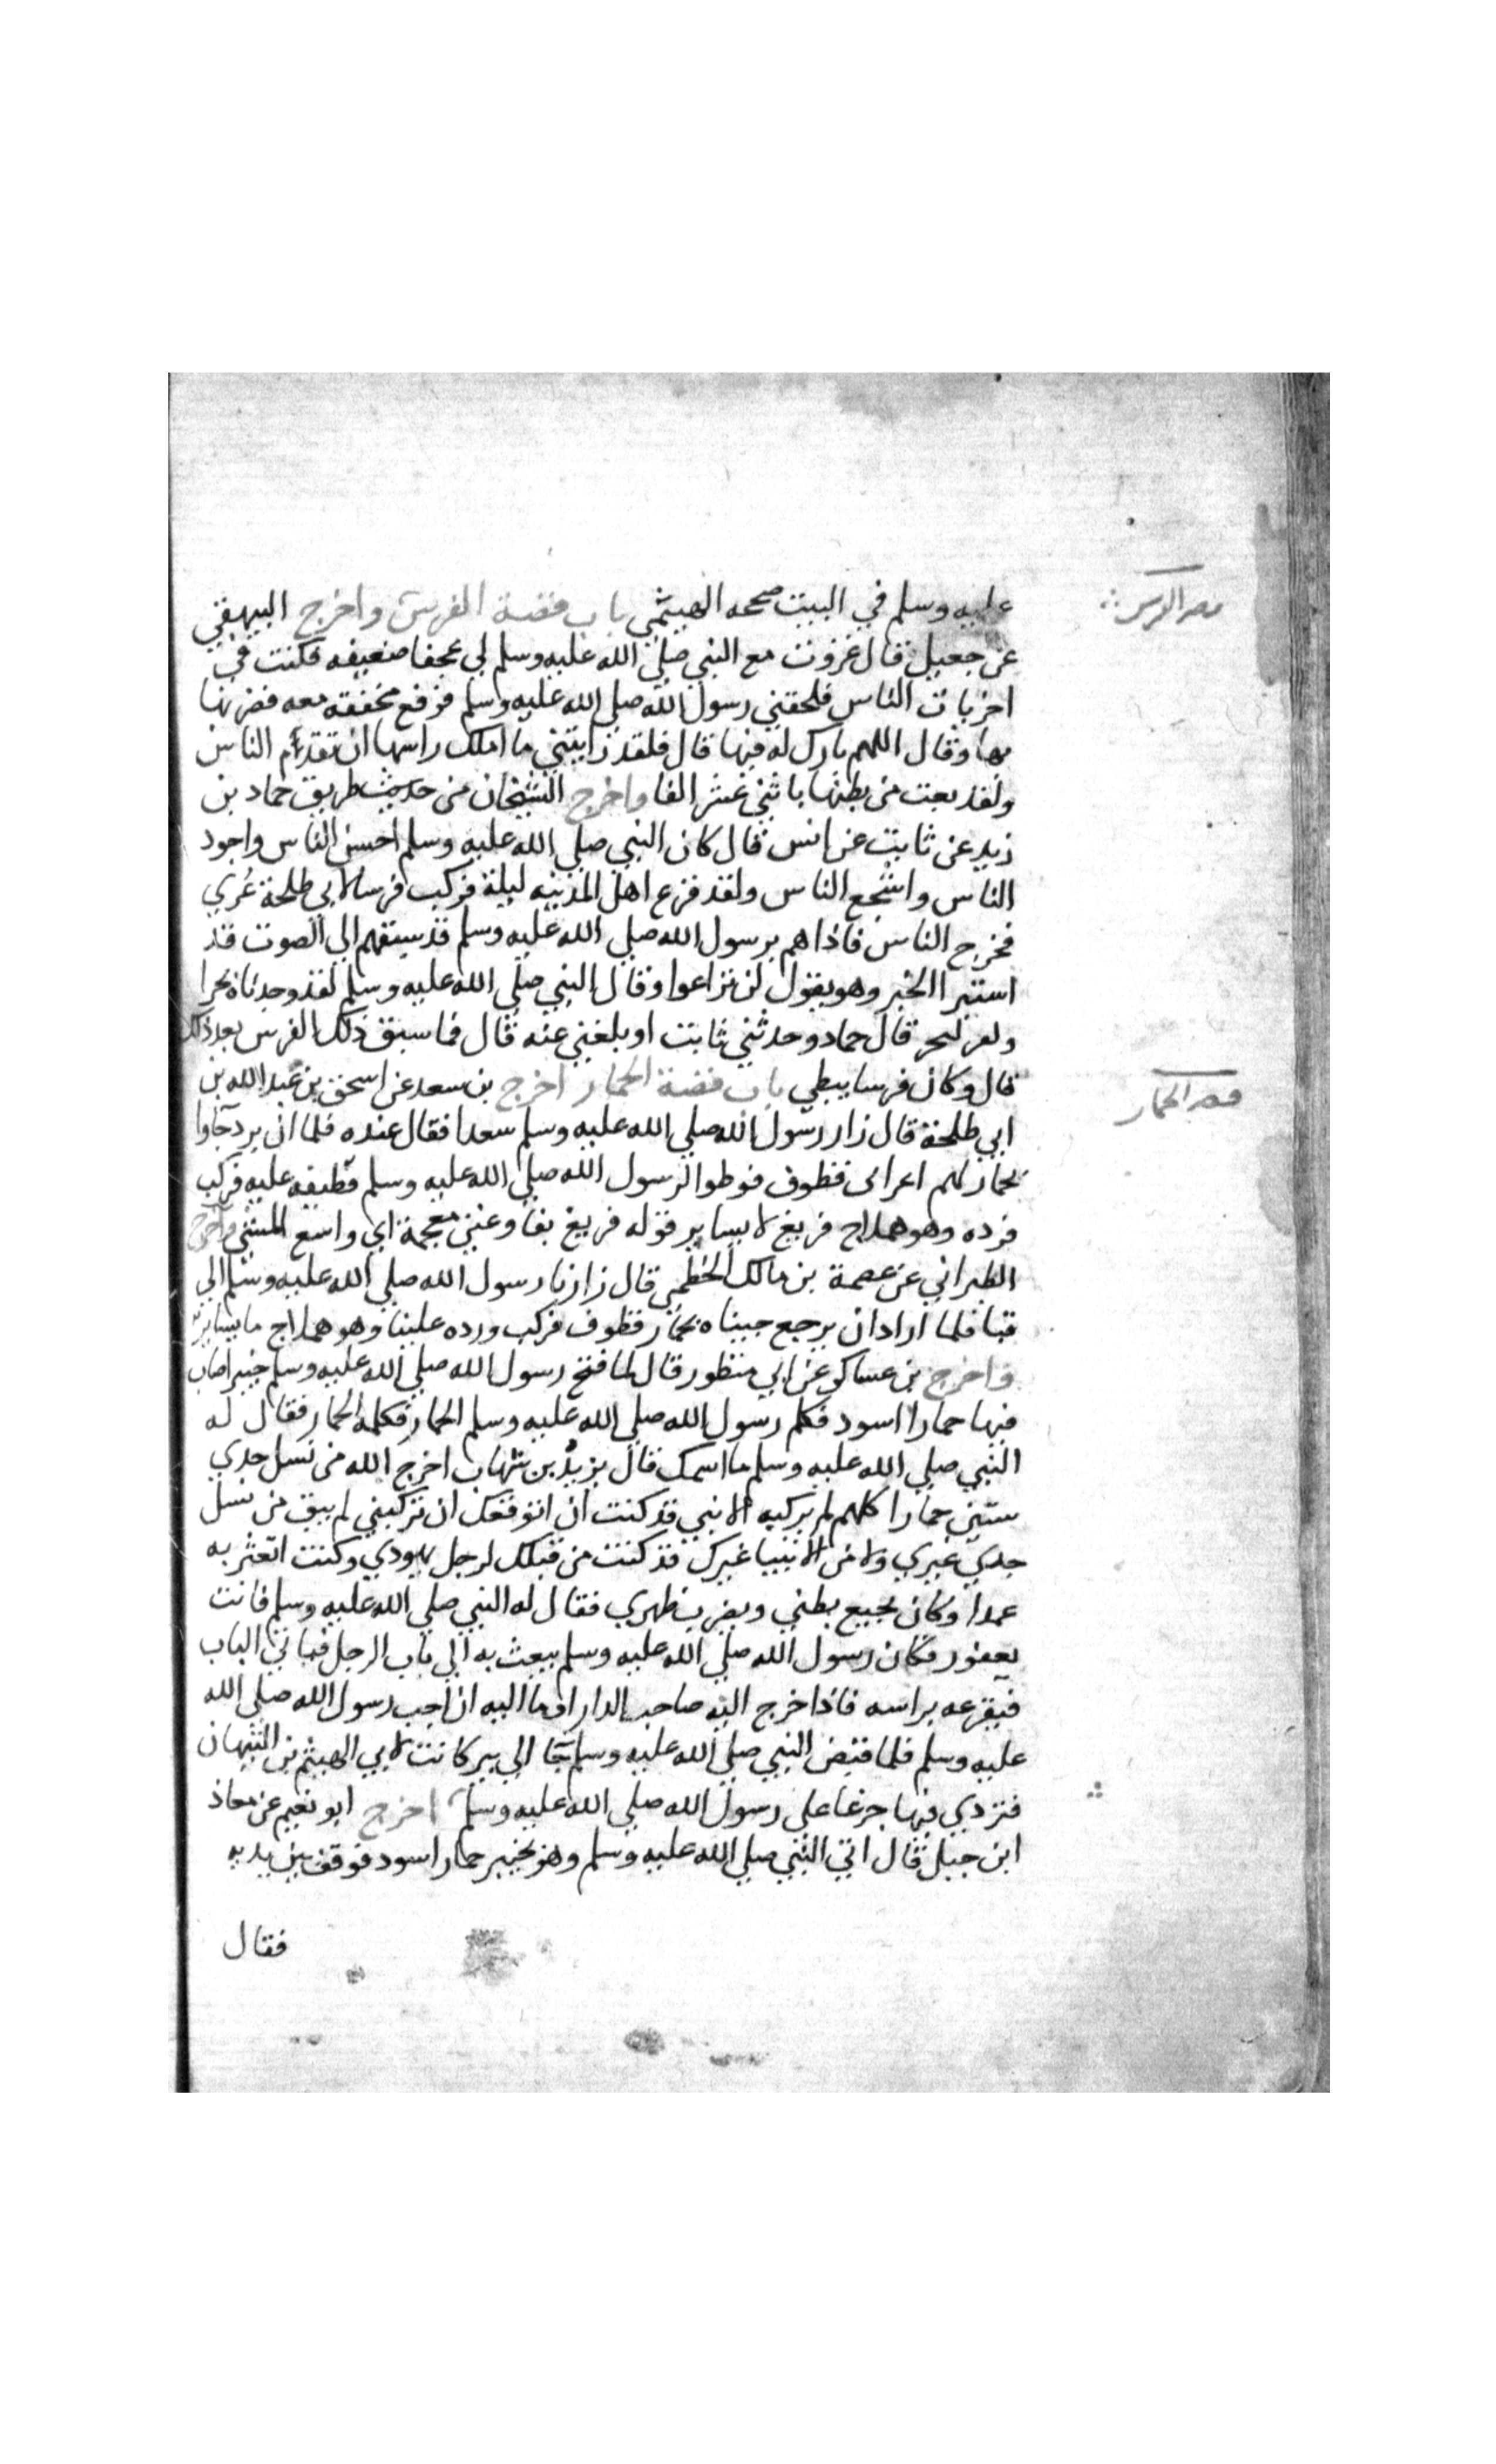 عليه وسلم في البيت صححه الهيثمي باب قصة الفرس واخرج البيهقي
قصه الفرس
عن جعيل قال غزوت مع النبي صلي الله عليه وسلم لي عجفا ضعيفه فكنت في
اخريات الناس فلحقني رسول الله صلي الله عليه وسلم فرفع مخفقة معه فضربها
بها وقال اللهم بارك له فيها قال فلقد رايتني ما املك راسها ان تقدم الناس
ولقد بعت من بطنها باثني عشر الفا واخرج الشيخان من حديث طريق حماد بن
زيد عن ثابت عن انس قال كان النبي صلي الله عليه وسلم احسن الناس واجود
الناس واشجع الناس ولقد فزع اهل المدينه ليلة فركب فرسا لابي طلحة عُري
فخرج الناس فاذا هم برسول الله صلي الله عليه وسلم قد سبقهم الي الصوت قد
استبرا الخبر وهو يقول لن تراعوا وقال النبي صلي الله عليه وسلم لقد وجدناه بحرا
قال حماد وحدثني ثابت او بلغني عنه قال فما سبق ذلك الفرس بعد ذلك
قال وكان فرسا يبطي باب قصة الحمار اخرج بن سعد عن اسحق بن عبد الله بن
قصه الحمار
ابي طلحة قال زار رسول الله صلي الله عليه وسلم سعدا فقال عنده فلما ان برد جاوا
بحمار لهم اعرابى قطوف فوطوا لرسول الله صلي الله عليه وسلم قطيفه عليه فركب
فرده وهو هملاج فريغ لا يساير قوله فريغ بفا وغين معجمة اي واسع المشي واخرج
الطبراني عن عصمة بن مالك الخطمي قال زارنا رسول الله صلي الله عليه وسلم الي
قبا فلما اراد ان يرجع جيناه بحمار قطوف فركب ورده علينا وهو هملاج ما يساير
واخرج بن عساكر عن ابي منظور قال لما فتح رسول الله صلي الله عليه وسلم خيبر اصاب
فيها حمارا اسود فكلم رسول الله صلي الله عليه وسلم الحمار فكلمه الحمار فقال له
النبي صلي الله عليه وسلم ما اسمك قال يزيد بن شهاب اخرج الله من نسل جدي
ستين حمارا كلهم لم يركبه الا نبي قد كنت ان اتوقعك ان تركبني لم يبق من نسل
جدي غيري ولا من الانبيا غيرك قد كنت من قبلك لرجل يهودي وكنت اتعثر به
عمدا وكان يجيع بطني ويضرب ظهري فقال له النبي صلي الله عليه وسلم فانت
يعفور فكان رسول الله صلي الله عليه وسلم يبعث به الي باب الرجل فياتي الباب
فيقرعه براسه فاذا خرج اليه صاحب الدار اوما اليه ان اجب رسول الله صلي الله
عليه وسلم فلما قبض النبي صلي الله عليه وسلم جا الي بير كانت لابي الهيثم بن التيهان
فتردي فيها جزعا على رسول الله صلي الله عليه وسلم اخرج ابو نعيم عن معاذ
ابن جبل قال اتي النبي صلي الله عليه وسلم وهو بخيبر حمار اسود فوقف بين يديه
فقال